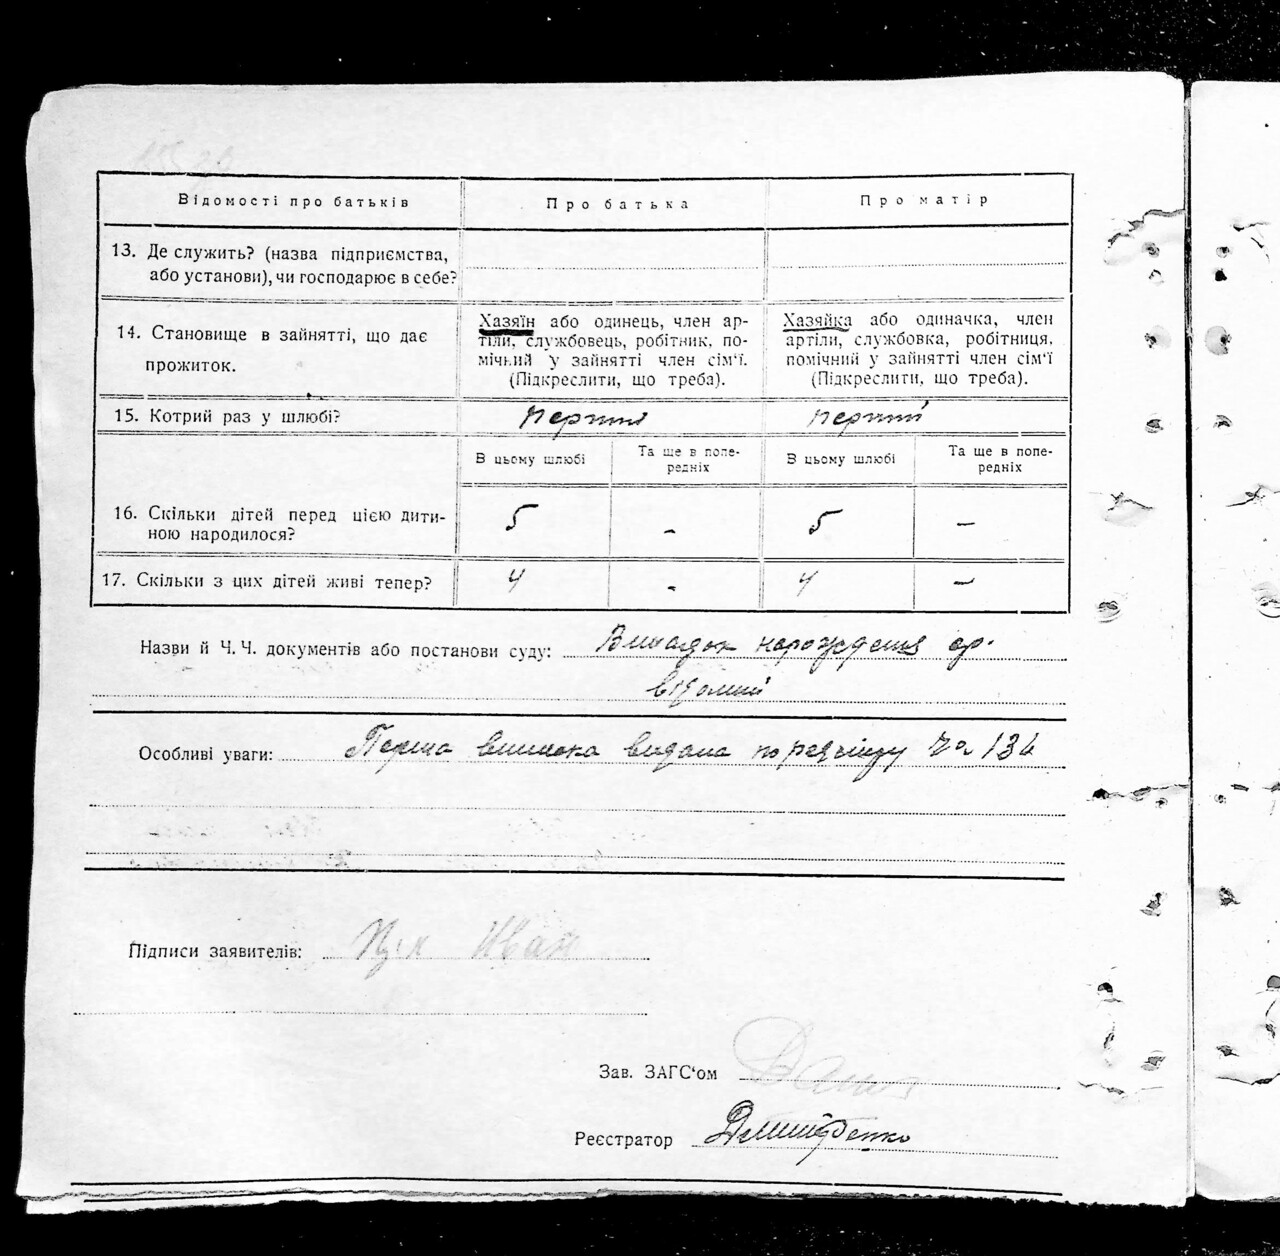 Відомості про батьків
Про батька
Про матір
13. Де служить? (назва підприємства,
або установи), чи господарює в себе?
14. Становище в зайнятті, що дає
прожиток.
Хазяїн або одинець, член ар-
тіли, службовець, робітник, по-
мічний у зайнятті член сім'ї.
(Підкреслити, що треба).
Хазяйка або одиначка, член
артіли, службовка, робітниця,
помічний у зайнятті член сім'ї
(Підкреслити, що треба).
15. Котрий раз у шлюбі?
перший
перший
В цьому шлюбі
Та ще в попе-
редніх
В цьому шлюбі
Та ще в попе-
редніх
16. Скільки дітей перед цією дити-
ною народилося?
5
-
5
-
17. Скільки з цих дітей живі тепер?
4
-
4
-
Назви й Ч. Ч. документів або постанови суду: Випадок народження
відомий
Особливі уваги: Перша виписка видана по
Підписи заявителів: Іван
Зав. ЗАГС'ом
Реєстратор